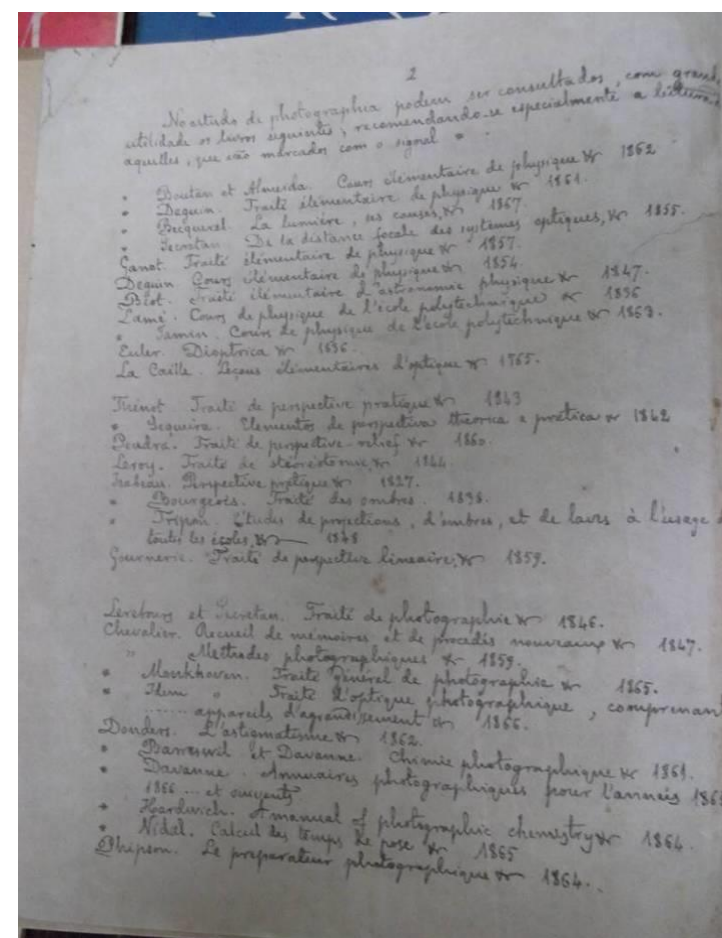 2
No estudo de photographia podem ser consultados, com grand
utilidade os livros seguintes, recomendando-se especialmente a leitura
aquelles, que são marcados com o signal * .
* Boutan et Almeida. Cours élémentaire de physique &r 1862
* Deguin. Traité élémentaire de physique &r 1861.
* Becquerel. La lumière, ses causes, &r 1867.
* Secretan. De la distance focale des systèmes optiques, &r 1855.
Ganot. Traité élémentaire de physique &r 1857.
Deguin Cours élémentaire de physique &r 1854.
Biot. Traité élémentaire d'astronomie physique &r 1847.
Lamé. Cours de physique de l'école polytechnique &r 1836
* Jamin. Cours de physique de l'école polytechnique &r 1863.
Euler. Dioptrica &r
La Caille. Leçons élémentaires d'optique &r 1765.
Thénot. Traité de perspective pratique &r 1843
* Sequeira. Elementos de perspectiva theorica e pratica &r 1842
Poudra. Traité de perspective-relief &r 1860.
Leroy. Traité de stéréotomie &r 1844.
Isabeau. Perspective pratique &r 1827.
* Bourgeois. Traité des ombres. 1838.
* Tripon. Études de projections, d'ombres, et de lavis à l'usage
toutes les écoles, &r 1848
Gournerie. Traité de perspective lineaire, &r 1859.
Lerebours et Secretan. Traité de photographie &r 1846.
Chevalier. Recueil de mémoires et de procédés nouveaux &r 1847.
" Méthodes photographiques &r 1859.
* Monkhoven. Traité général de photographie &r 1865.
* Idem " Traité d'optique photographique, comprenan
....... appareils d'agrandissement &r 1866.
Donders. L'astigmatisme &r 1862.
* Barreswil et Davanne. Chimie photographique &r 1861.
* Davanne. Annuaires photographiques pour l'années 186
1866 ... et suivants
* Hardwich. A manual of photographic chemistry &r 1864.
* Vidal. Calcul des temps de pose &r 1865
Phipson. Le preparateur photographique &r 1864.